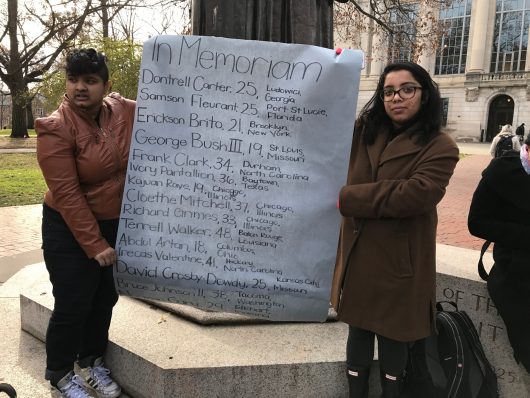 In Memoriam
Dontrell Carter, 25, Ludowici, Georgia
Samson Fleurant, 25, Port St Lucie, Florida
Erickson Brito, 21, Brooklyn, New York
George Bush III, 19, St Louis, Missouri
Frank Clark, 34, Durham, North Carolina
Ivory Pantallion, 36, Baytown, Texas
Kajuan Raye, 19, Chicago, Illinois
Cloethe Mitchell, 37, Chicago, Illinois
Richard Grimes, 33, Chicago, Illinois
Terrell Walker, 48, Baton Rouge, Louisiana
Abdul Artan, 18, Columbus, Ohio
Irecas Valentine, 41, Hickory, North Carolina
David Crosby Dowdy, 25, Kansas City, Missouri
Bruce Johnson II, 38, Tacoma, Washington
29,
OF THE